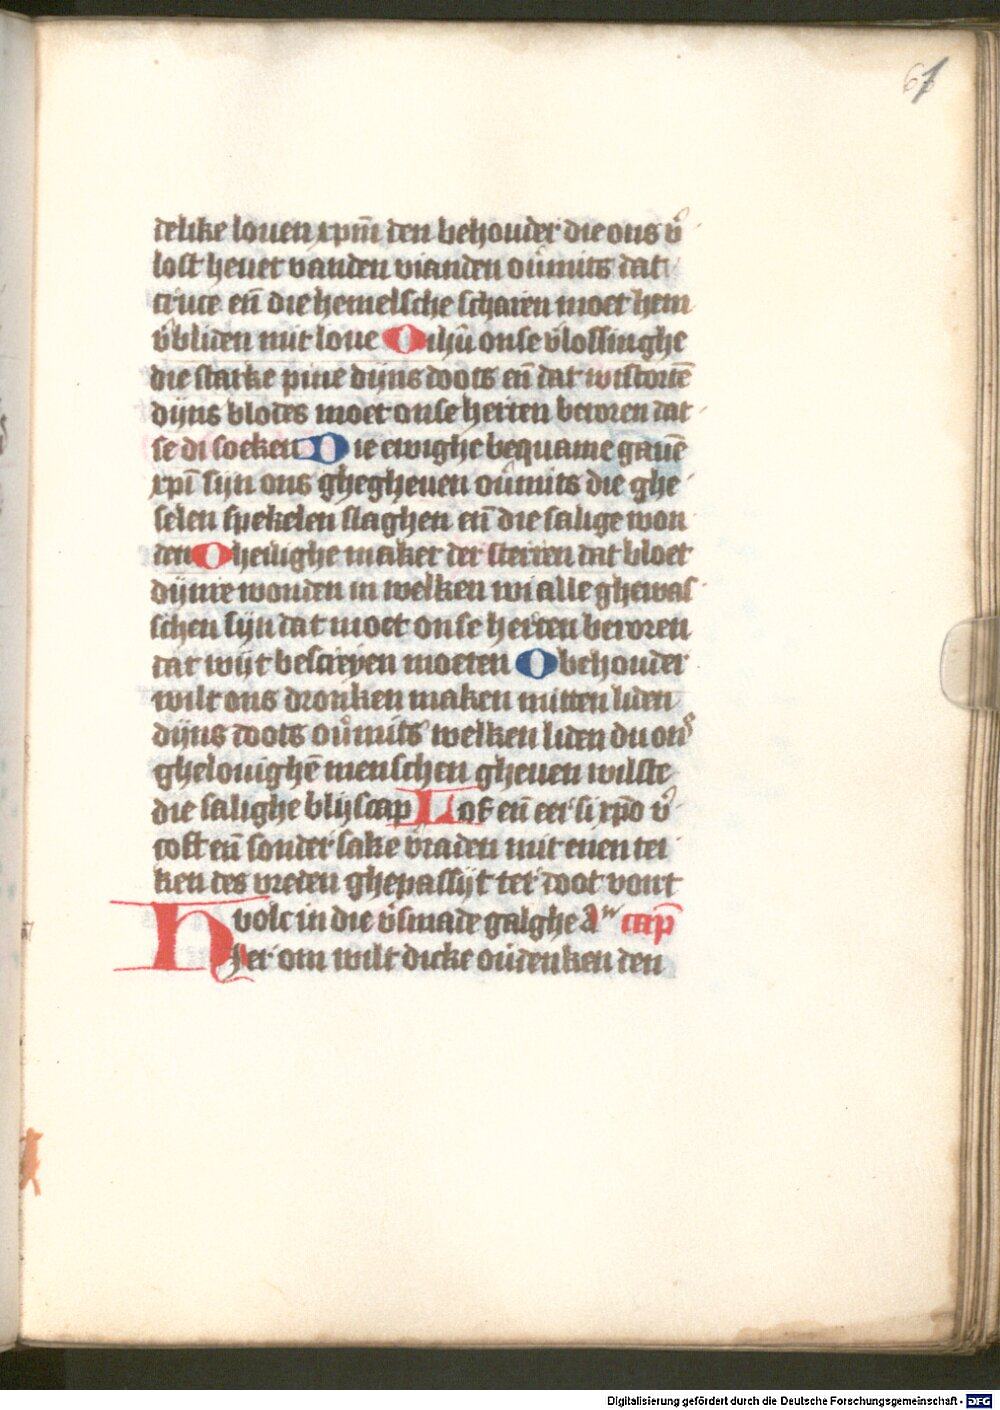 61
delike louen xpm̄ den behouder die ons v̄
lost heuet vanden vianden ouͥmits dat
cruce en̄ die hemelsche scharen moet hem
v̄bliden mit loue O ihū onse v̄lossinghe
die starke pine dijns doots en̄ dat wtstortē
dijns blodes moet onse herten beroren dat
se di soeken Die ewighe bequame gauē
xpī sijn ons ghegheuen ouͥmits die ghe
selen spekelen slaghen en̄ die salige won
den O heilighe maker der sterren dat bloet
dijnre wonden in welken wi alle ghewas
schen sijn dat moet onse herten beroren
dat wijt bescreyen moeten O behouder
wilt ons dronken maken mitten liden
dijns doots ouͥmits welken liden du ons
ghelouighē menschen gheuen wilste
die salighe blijscap Lof en̄ eer si xpō v̄
coft en̄ sonder sake v̄raden mit enen tei
ken des vreden ghepassijt ter doot vont
volc in die v̄smade galghe a͞ capͥ
Hier om wilt dicke ouͥdenken den
Digitalisierung gefördert durch die Deutsche Forschungsgemeinschaft - DFG